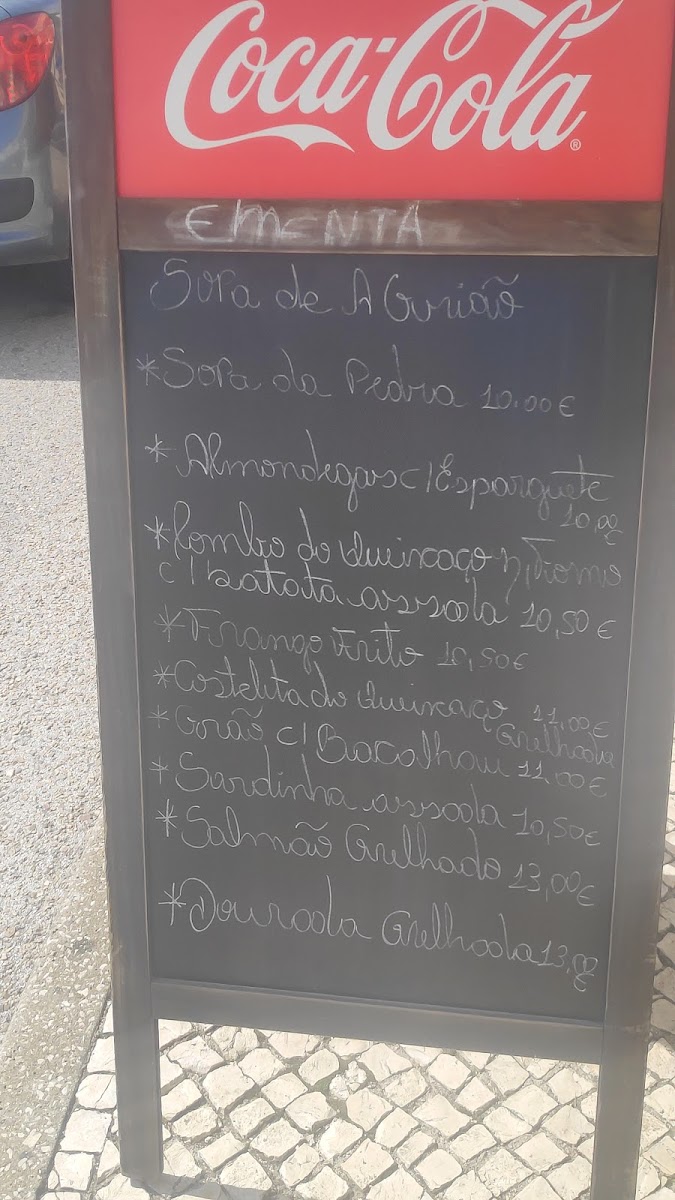 Coca-Cola®
EMENTA
Sopa de AGurião
*Sopa da Pedra 10.00€
*Almondegas c/Esparguete
10,00€
*Lombo do Queixaço
c/Batata assada 10,50€
*Frango Frito 10,50€
*Costelita do Queixaço 11,00€
Grelhada
*Grão c/Bacalhau 11.00€
*Sardinha assada 10,50€
*Salmão Grelhado 13,00€
*Dourada Grelhada 13.00€